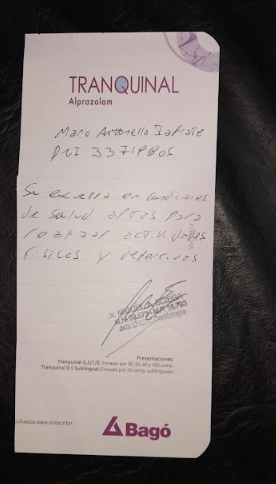 TRANQUINAL
Alprazolam
Maria Antonella
DNI
Se encuentra en condiciones
de salud aptas para
realizar actividades
físicas y deportivas
Presentaciones:
Tranquinal 0,5/1/2: Envases por 30, 60 y 100 comp.
Tranquinal 0,5 Sublingual: Envases por 30 comp. sublinguales
para prescribir
Bagó